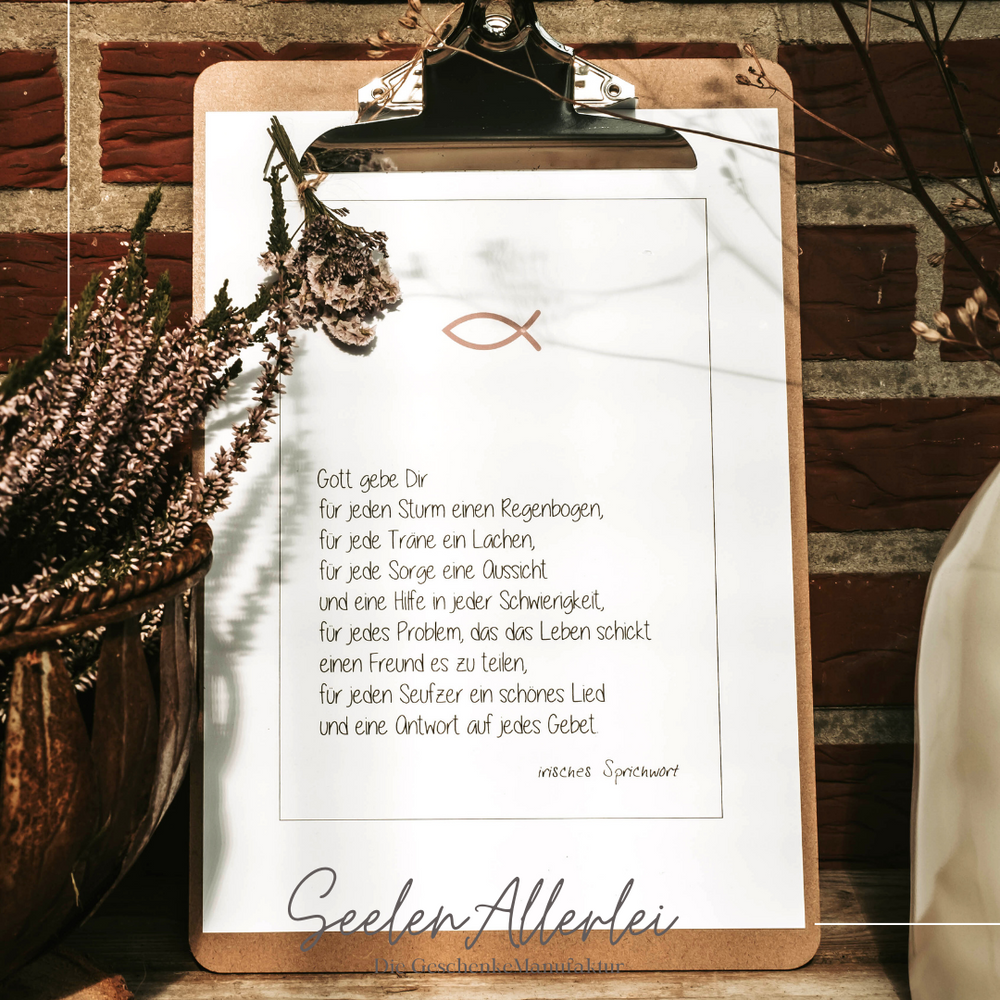 Gott gebe Dir
für jeden Sturm einen Regenbogen,
für jede Träne ein Lachen,
für jede Sorge eine Aussicht
und eine Hilfe in jeder Schwierigkeit,
für jedes Problem, das das Leben schickt
einen Freund es zu teilen,
für jeden Seufzer ein schönes Lied
und eine Antwort auf jedes Gebet.
irisches Sprichwort
SeelenAllerlei
Die GeschenkeManufaktur